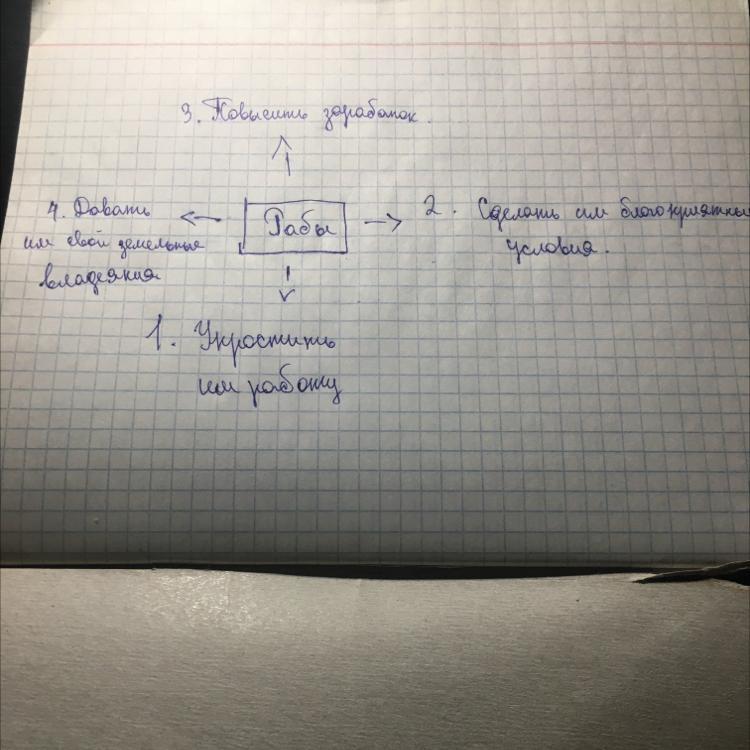 3. Повысить заработок.
4. Довать
им свои земельные
владения
Рабы
2. Сделать им благоприятные
условия.
1. Укростить
им работу